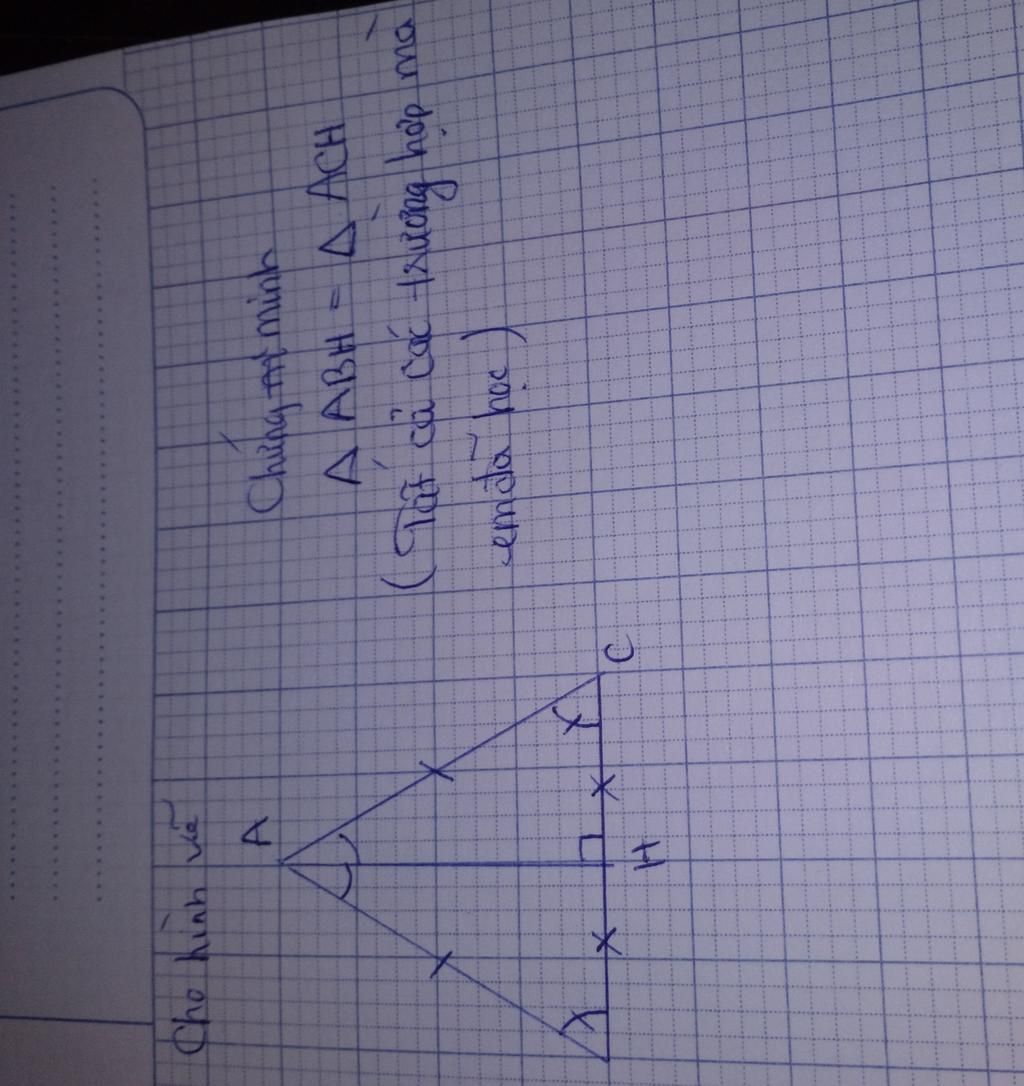 Cho hình vẽ
A
H
C
Chứng minh
Δ ABH = Δ ACH
(Tất cả các trường hợp mà
em đã học)